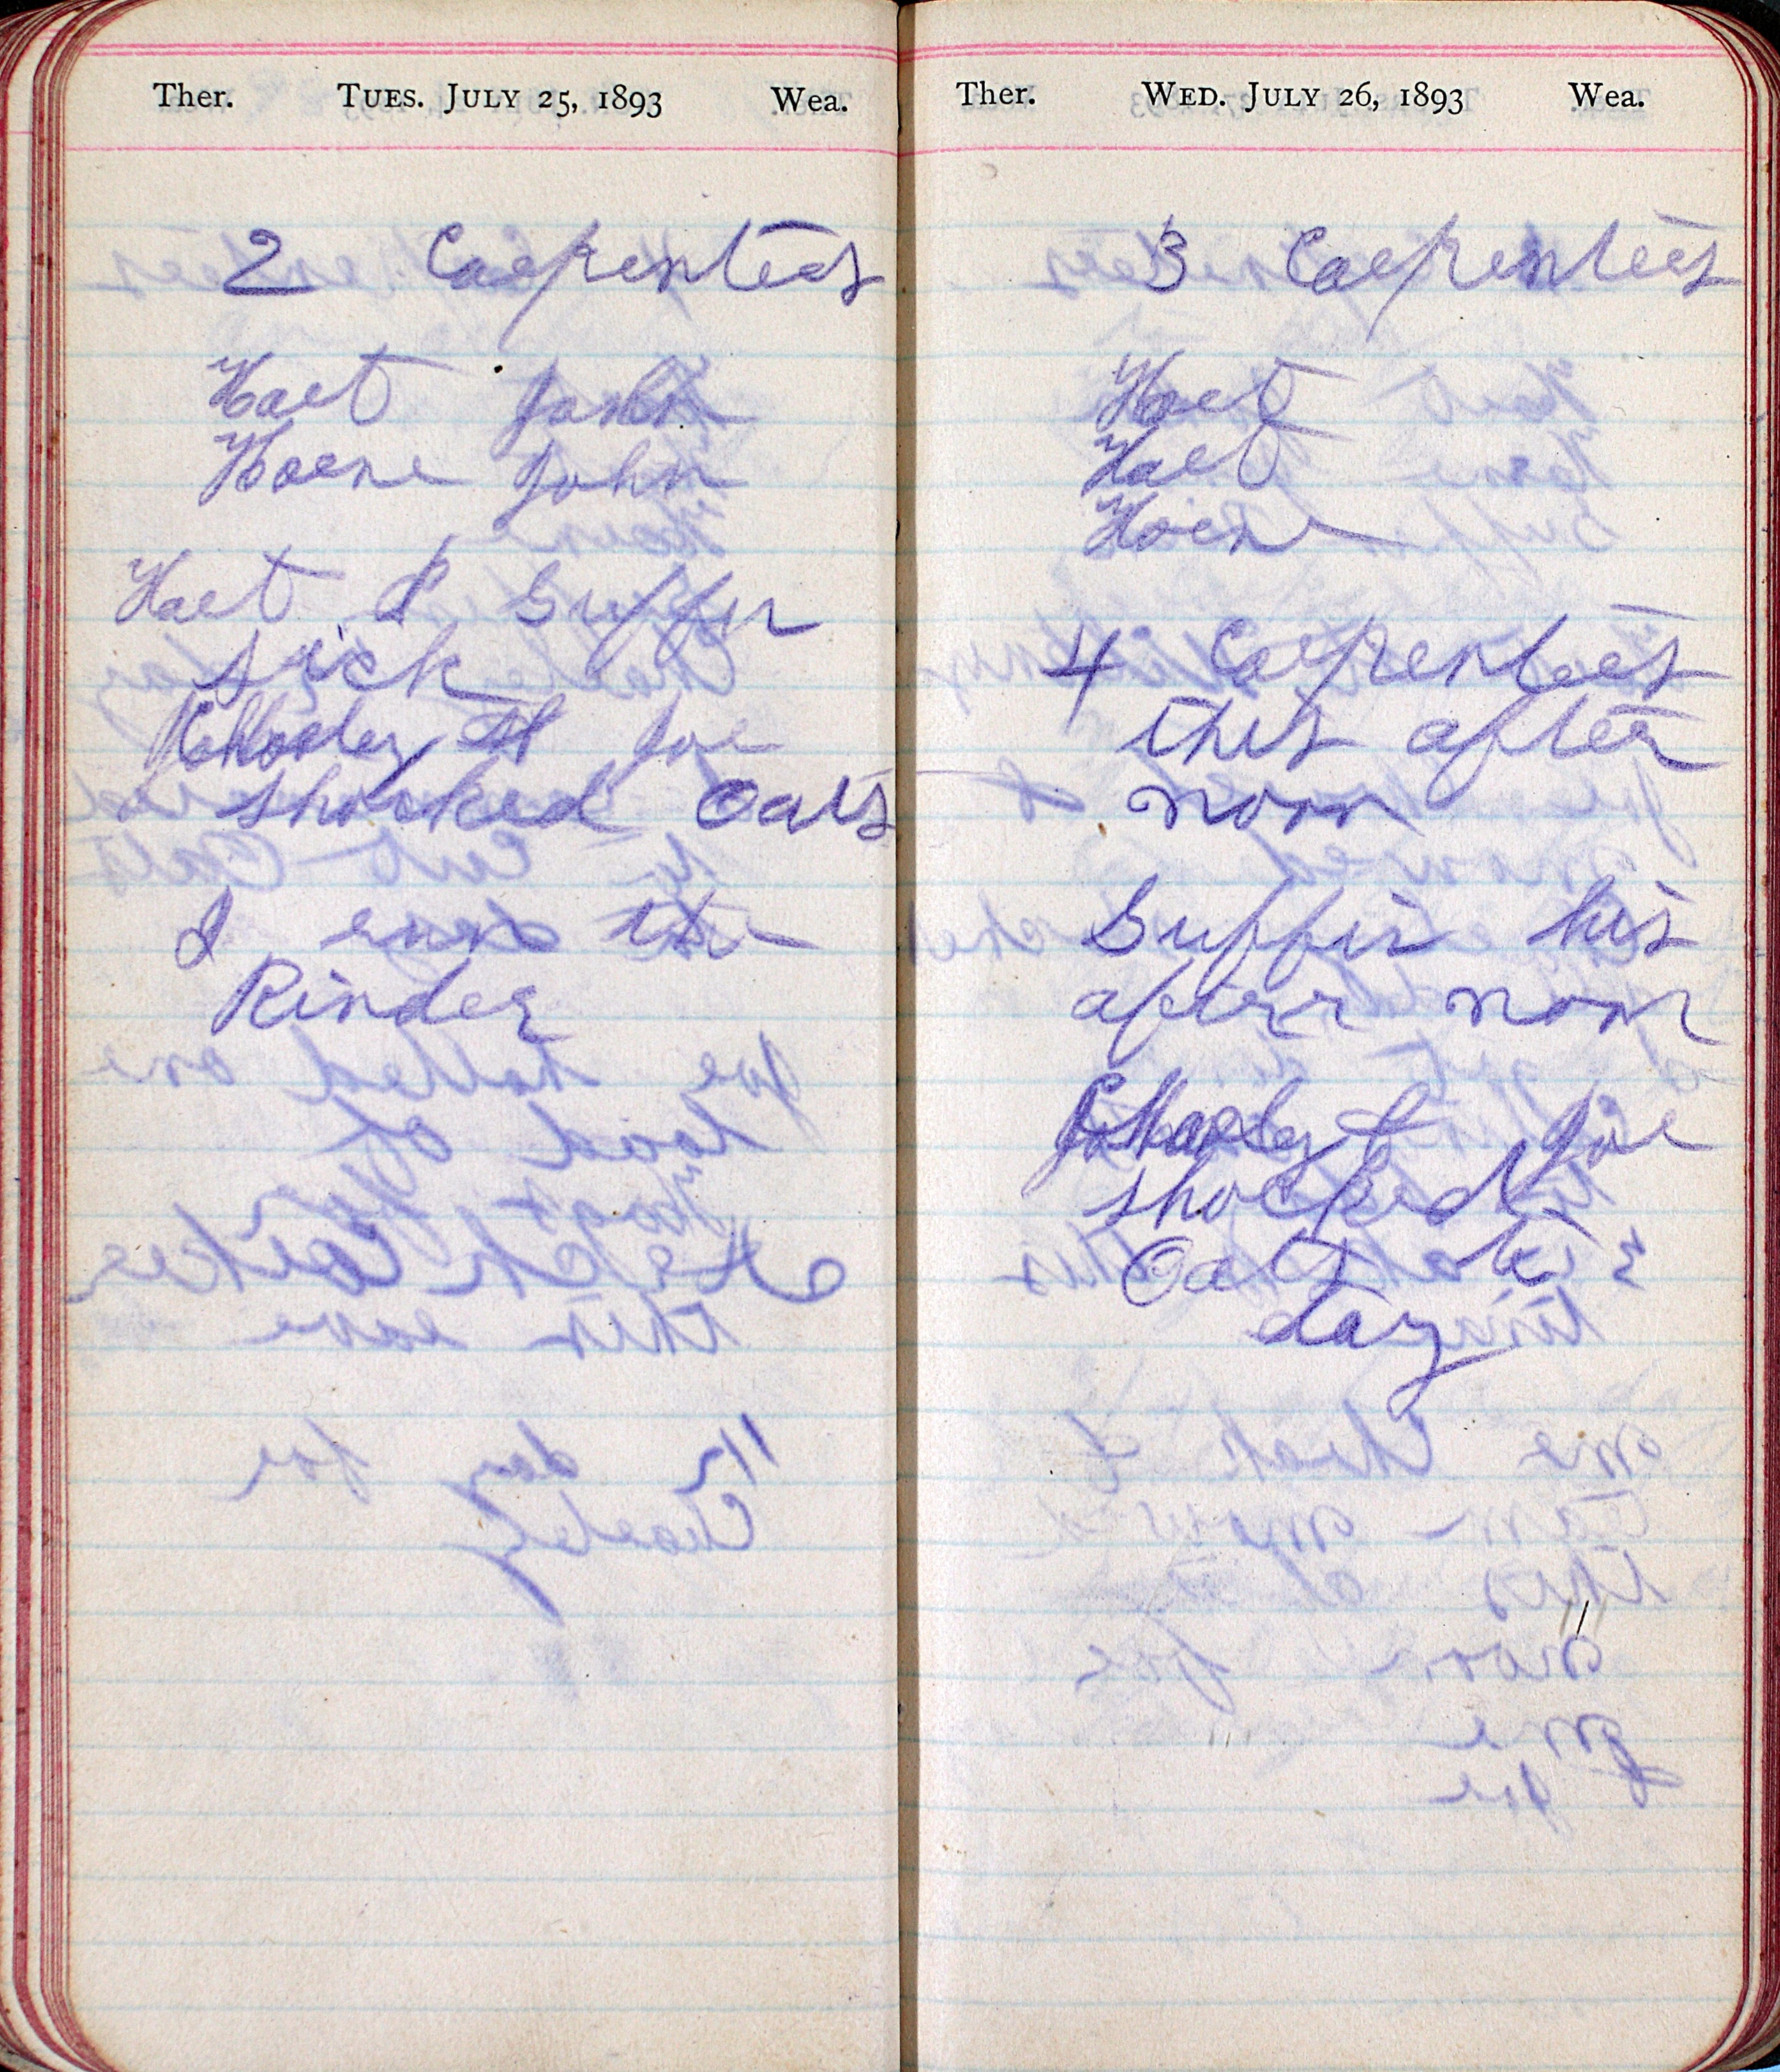 Ther. TUES. JULY 25, 1893 Wea.
2 Carpenters
Hart John
Horne John
Hart & Guffin
sick
Charley & Joe
shocked Oats
I run the
Binder
Ther. WED. JULY 26, 1893 Wea.
3 Carpenters
Hart
Hart
Horne
4 Carpenters
this after
noon
Guffin his
after noon
Charley & Joe
shocked
Oats to
day